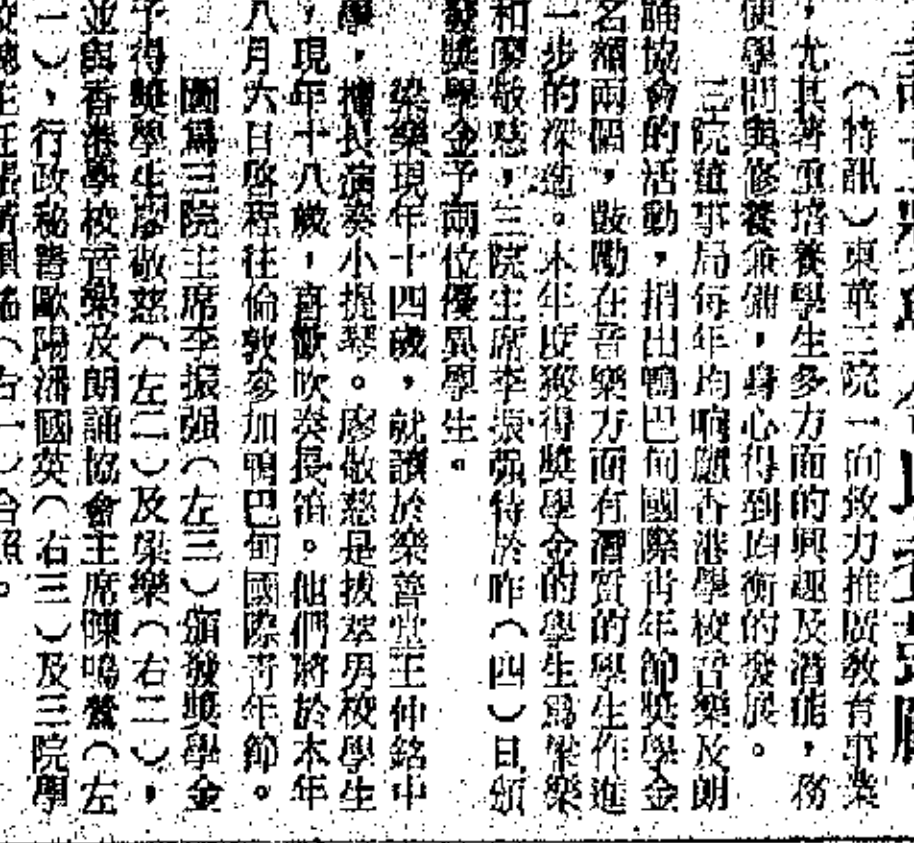 （特訊）東華三院一向致力推廣教育事業
，尤其著重培養學生多方面的興趣及潛能，務
使學問與修養兼備，身心得到均衡的發展。
三院董事局每年均响應香港學校音樂及朗
誦協會的活動，捐出鴨巴甸國際青年節獎學金
名額兩個，鼓勵在音樂方面有潛質的學生作進
一步的深造。本年度獲得獎學金的學生爲梁樂
和廖敬慈，三院主席李振强特於昨（四）日頒
發獎學金予兩位優異學生。
梁樂現年十四歲，就讀於樂善堂王仲銘中
學，擅長演奏小提琴。廖敬慈是拔萃男校學生
，現年十八歲，喜歡吹奏長笛。他們將於本年
八月六日啓程往倫敦參加鴨巴甸國際青年節。
圖爲三院主席李振强（左三）頒發獎學金
予得獎學生廖敬慈（左二）及梁樂（右二），
並與香港學校音樂及朗誦協會主席陳鳴鶯（左
一），行政秘書歐陽潘國英（右三）及三院學
（右一）合照。